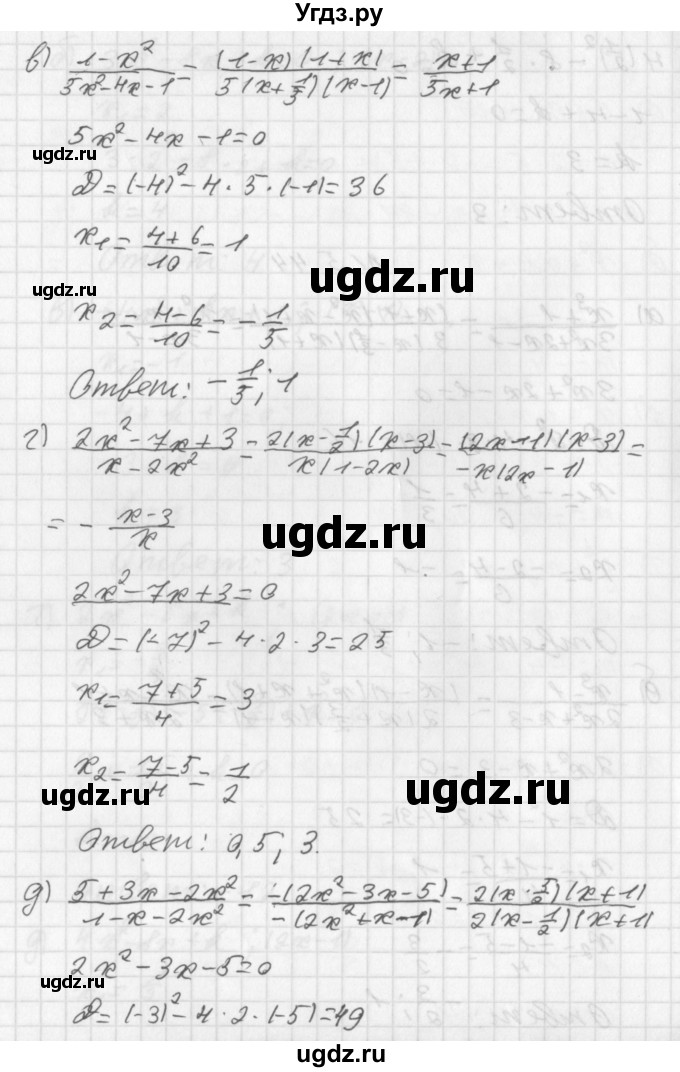 Угдз.ру
в) (1-x²)/(5x²-4x-1) = ((1-x)(1+x))/(5(x+1/5)(x-1)) = (x+1)/(5x+1)
5x²-4x-1=0
ugdz.ru
D=(-4)²-4·5·(-1)=36
x₁=(4+6)/10=1
ugdz.ru
ugdz.ru
x₂=(4-6)/10=-1/5
Ответ: -1/5; 1
г) (2x²-7x+3)/(x-2x²) = (2(x-1/2)(x-3))/(x(1-2x)) = ((2x-1)(x-3))/(-x(2x-1)) =
= -(x-3)/x
ugdz.ru
2x²-7x+3=0
D=(-7)²-4·2·3=25
x₁=(7+5)/4=3
x₂=(7-5)/4=1/2
ugdz.ru
ugdz.ru
Ответ: 0,5; 3.
д) (5+3x-2x²)/(1-x-2x²) = (-(2x²-3x-5))/(-(2x²+x-1)) = (2(x·5/2)(x+1))/(2(x-1/2)(x+1))
2x²-3x-5=0
ugdz.ru
D=(-3)²-4·2·(-5)=49
ugdz.ru